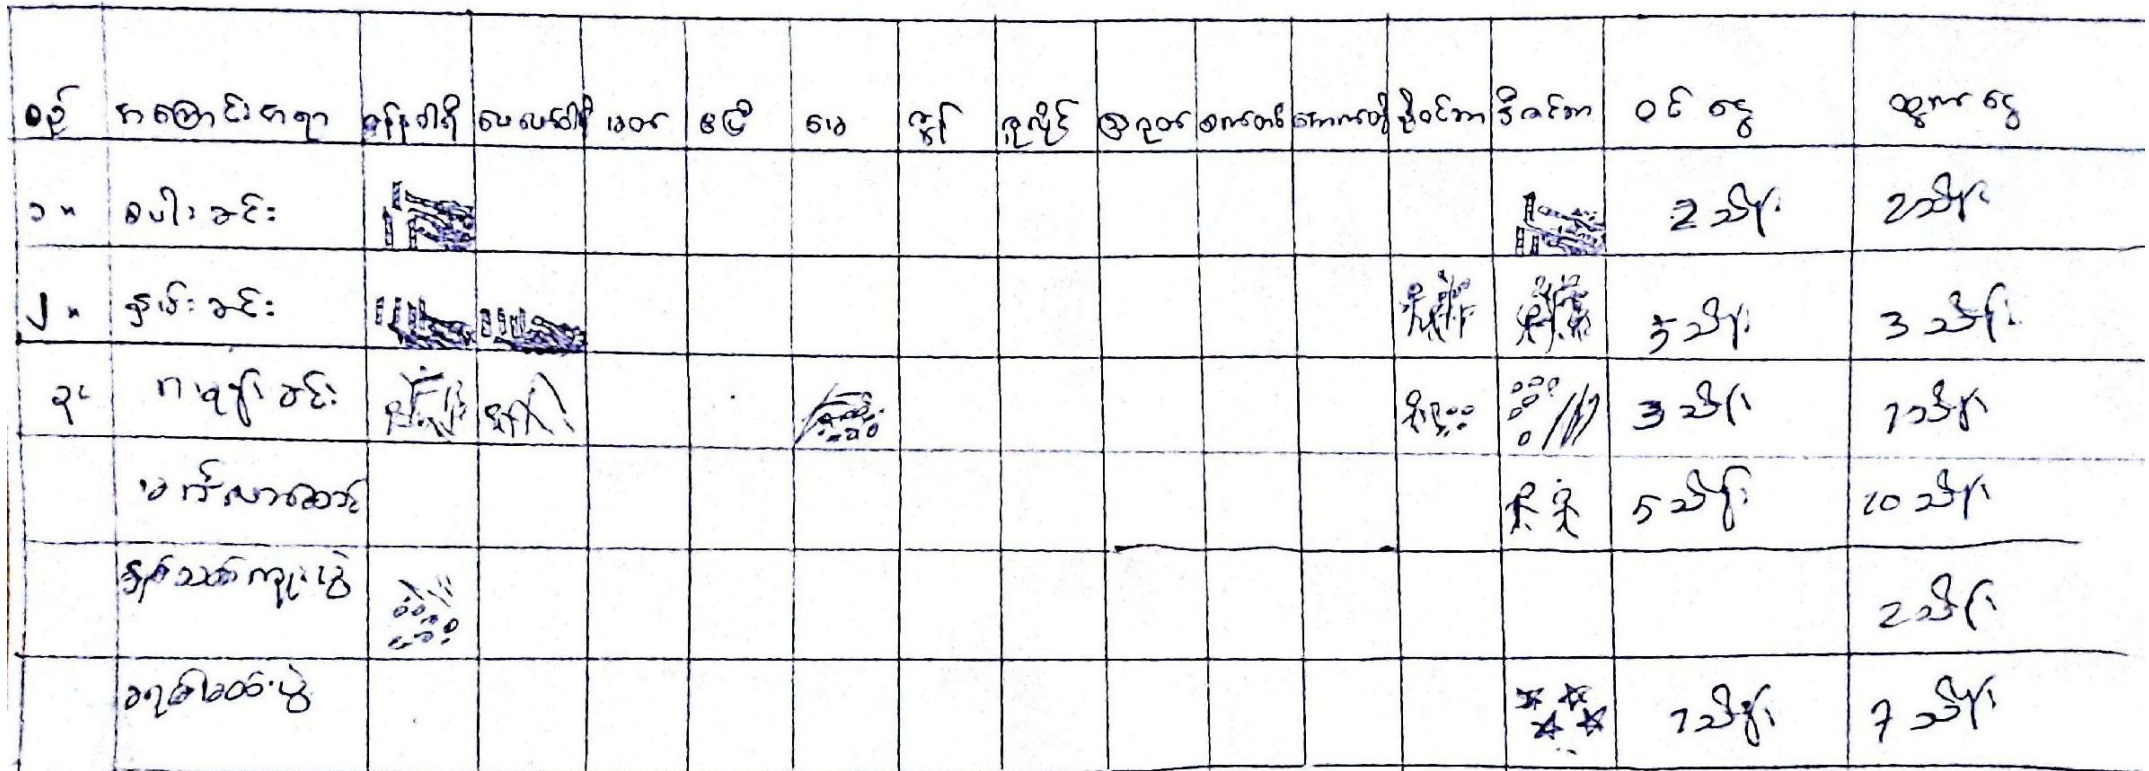 စဉ် အကြောင်းအရာ ဇန်နဝါရီ ဖေဖော်ဝါရီ မတ် ဧပြီ မေ ဇွန် ဇူလိုင် ဩဂုတ် စက်တင် အောက်တို နိုဝင်ဘာ ဒီဇင်ဘာ ဝင်ငွေ ထွက်ငွေ
၁။ စပါးခင်း 2 သိန်း 2 သိန်း
၂။ နှမ်းခင်း 5 သိန်း 3 သိန်း
၃။ 3 သိန်း 1 သိန်း
မင်္ဂလာဆောင် 5 သိန်း 10 သိန်း
နှစ်သစ်ကူးပွဲ 2 သိန်း
ခရစ်စမတ်ပွဲ 1 သိန်း 7 သိန်း